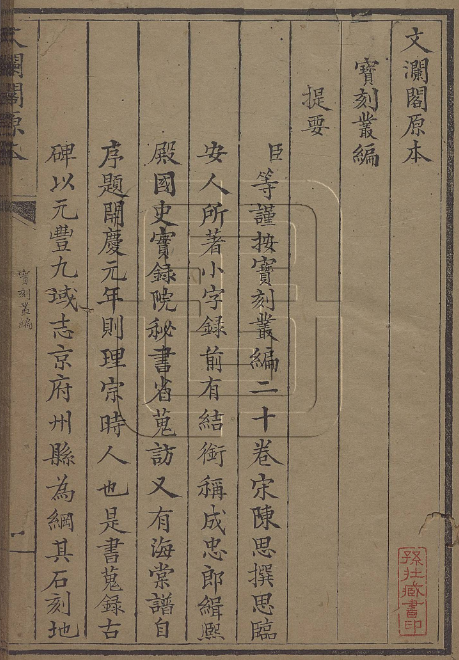 文瀾閣原本
寶刻叢編
提要
臣等謹按寶刻叢編二十卷宋陳思撰思臨
安人所著小字錄前有結銜稱成忠郎緝熙
殿國史實錄院秘書省蒐訪又有海棠譜自
序題開慶元年則理宗時人也是書蒐錄古
碑以元豐九域志京府州縣為綱其石刻地
寶刻叢編
文瀾閣原本
藏書印